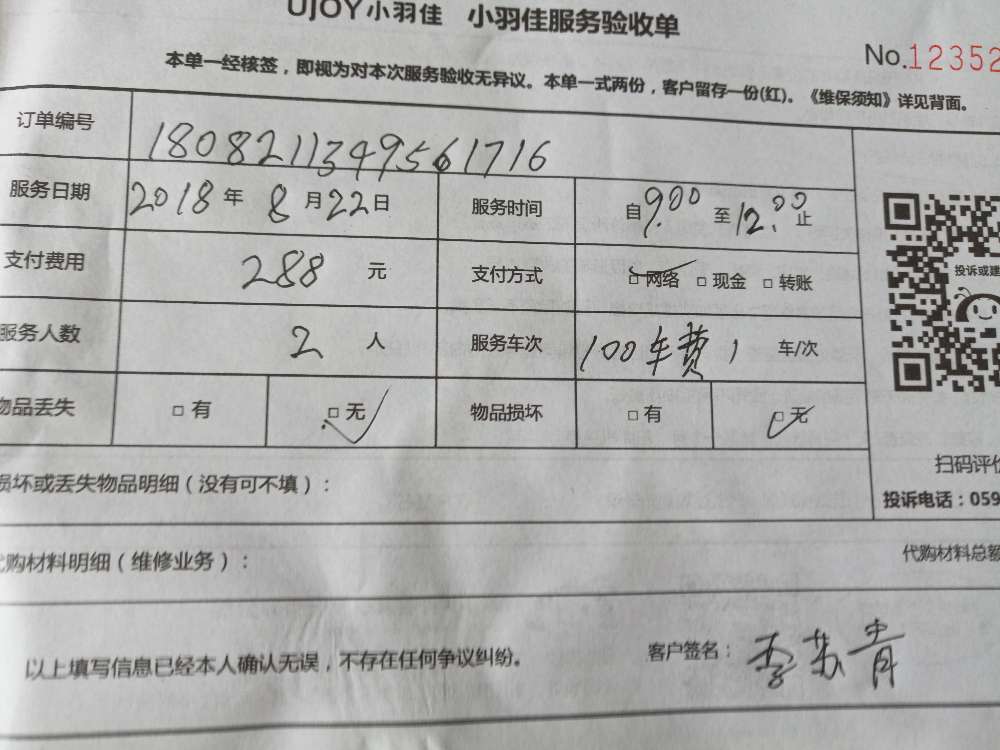 UJOY小羽佳 小羽佳服务验收单
No.12352
本单一经核签，即视为对本次服务验收无异议。本单一式两份，客户留存一份(红)。《维保须知》详见背面。
订单编号 180821134956 1716
服务日期 2018年 8月22日 服务时间 自9:00至12:00止
支付费用 288 元 支付方式 □网络 □现金 □转账
服务人数 2 人 服务车次 100车费 1 车/次
物品丢失 □有 □无 物品损坏 □有 □无
投诉或建
扫码评价
投诉电话：059
损坏或丢失物品明细（没有可不填）：
代购材料明细（维修业务）： 代购材料总额
以上填写信息已经本人确认无误，不存在任何争议纠纷。 客户签名：李苏青